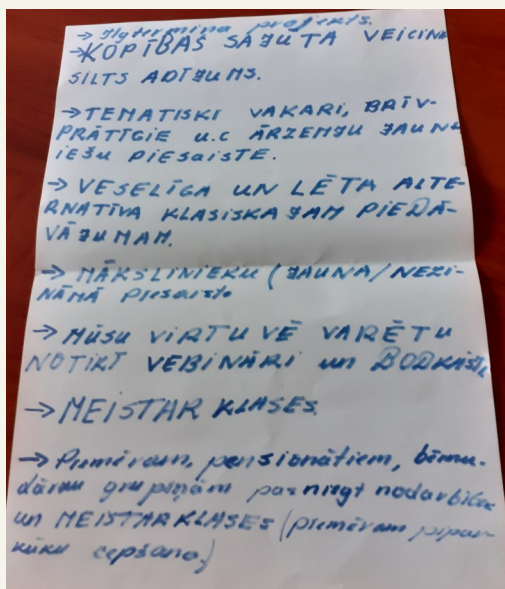 → Ilgtermiņa projekts.
→ KOPĪBAS SAJŪTA VEICINA
SILTS ADĪJUMS.
→ TEMATISKI VAKARI, BRĪV-
PRĀTĪGIE u.c ĀRZEMJU JAUN
IEŠU PIESAISTE.
→ VESELĪGA UN LĒTA ALTE-
RNATĪVA KLASISKAJAM PIEDĀ-
VĀJUMAM.
→ MĀKSLINIEKU (JAUNA/NEZI-
NĀMĀ PIESAISTE
→ MŪSU VIRTUVĒ VARĒTU
NOTIKT VEBINĀRI un BODKĀSTI
→ MEISTARKLASES.
→ Piemēram, pensionātiem, bērnu-
dārzu grupiņām pasniegt nodarbības
un MEISTARKLASES (piemēram pipar-
kūku cepšana.)